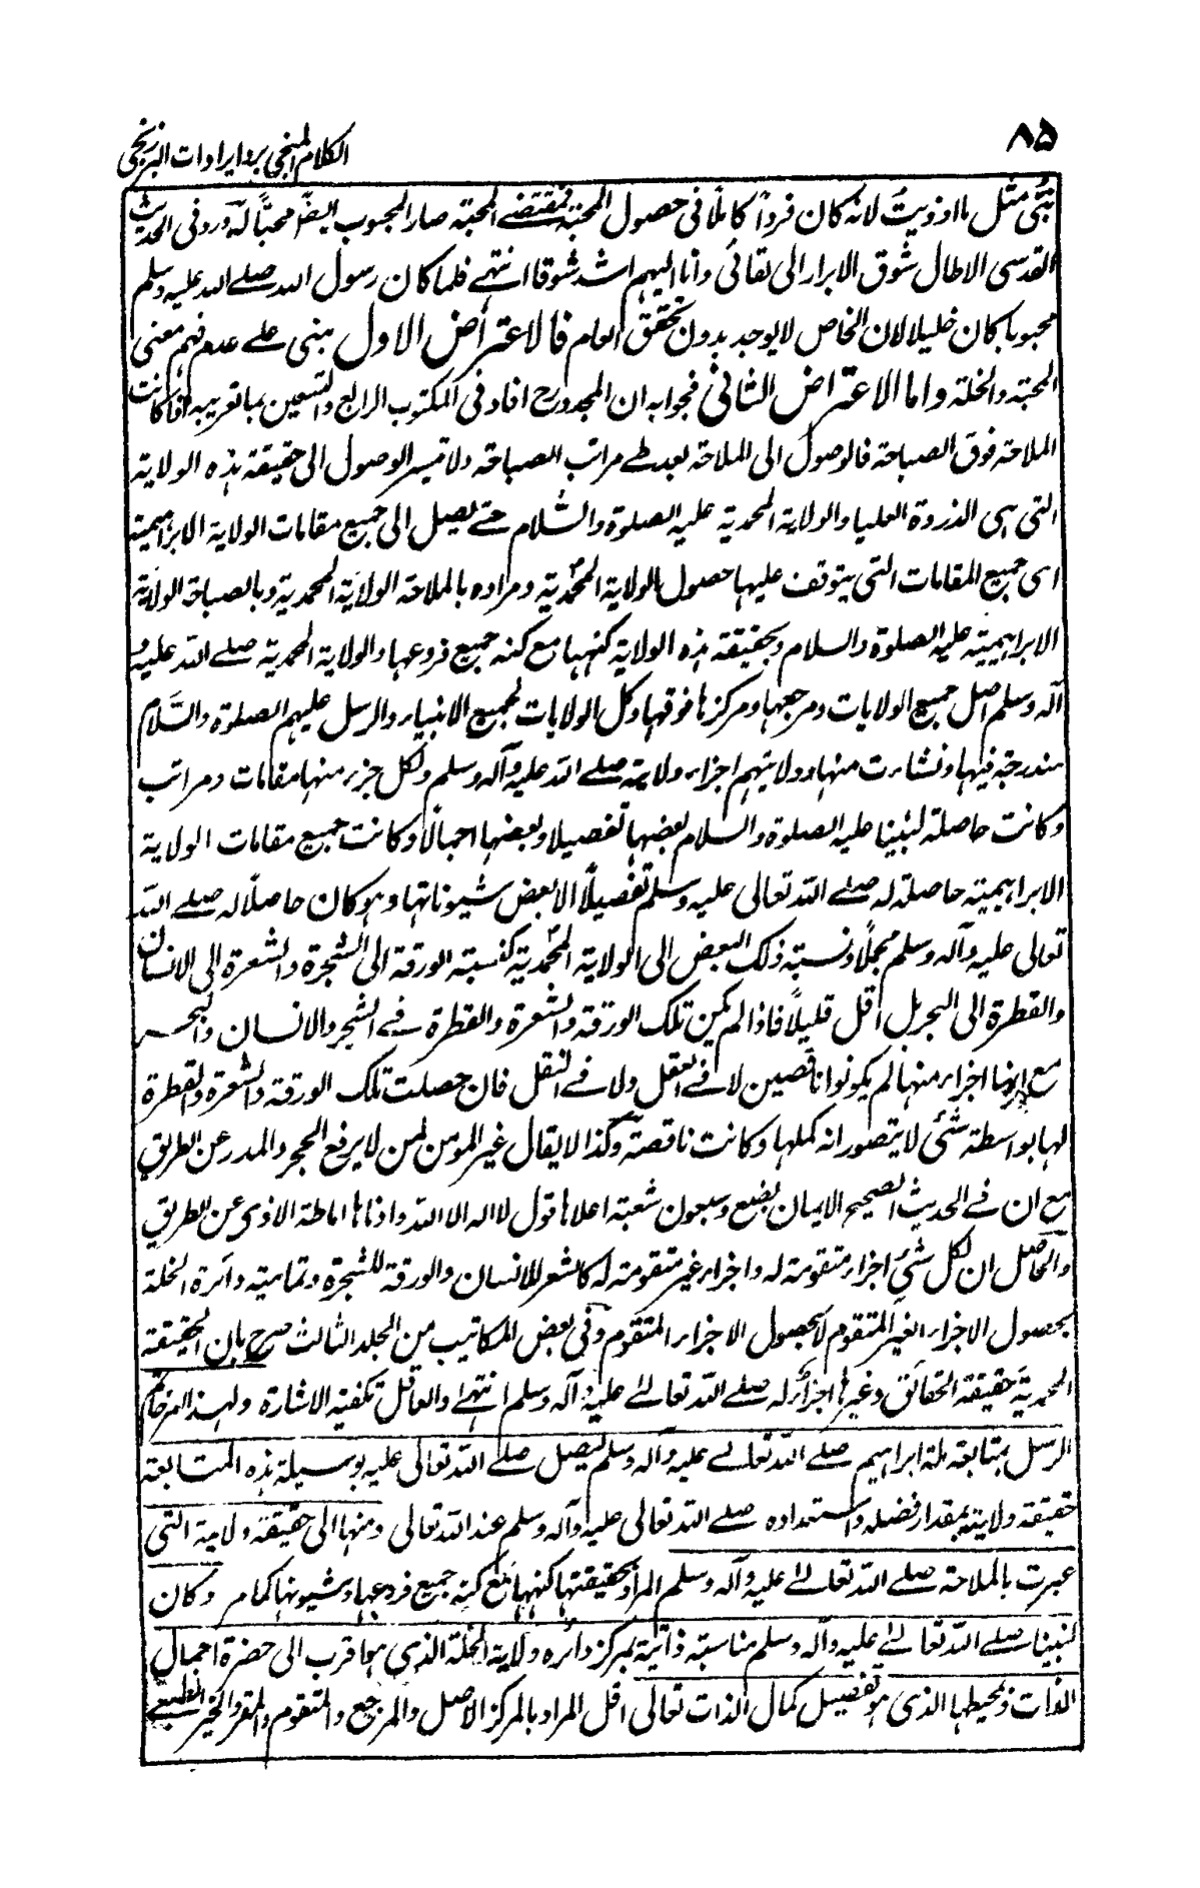 ٨٥
الكلام المنجي برد ايرادات البرزنجي
نبى مثل ما اوذيت لانه كان فرداً كاملاً فى حصول المحبة فمقتضے المحبة صار المحبوب ايضاً محبّاً له وردفى الحديث
القدسى الاطال شوق الابرار الى لقائى وانا اليهم اشد شوقا انتهے فلما كان رسول الله صلے الله عليه وسلم
محبوبا كان خليلا لان الخاص لا يوجد بدون تحقق العام فالاعتراض الاول مبنى علے عدم فهم معنى
المحبة والخلة واما الاعتراض الثانى فجوابه ان المجدد رح افاد فى المكتوب الرابع والتسعين بما تعريبه كانت
الملاحة فوق الصباحة فالوصول الى الملاحة بعد طے مراتب الصباحة ولا تيسر الوصول الى حقيقة هذه الولاية
التى هى الذروة العليا والولاية المحمدية عليه الصلوة والسَّلام حتے يصل الى جميع مقامات الولاية الابراهيمية
اى جميع المقامات التى يتوقف عليها حصول الولاية المحمدية ومراده بالملاحة الولاية المحمدية وبالصباحة الولاية
الابراهيمية عليه الصلوة والسلام وبحقيقة هذه الولاية كنهها مع كنه جميع فروعها والولاية المحمدية صلے الله عليه و
آله وسلم اصل جميع الولايات ومرجعها ومركزها فوقها وكل الولايات لجميع الانبياء والرسل عليهم الصلوة والسَّلام
مندرجة فيها ونشاءت منها وولايتهم اجزاء ولايته صلے الله عليه وآله وسلم ولكل جزء منها مقامات ومراتب
وكانت حاصلة لنبينا عليه الصلوة والسلام بعضها تفصيلا وبعضها اجمالاً وكانت جميع مقامات الولاية
الابراهيمية حاصلة له صلے الله تعالى عليه وسلم تفصيلاً الا بعض شيوناتها وهو كان حاصلاً له صلے الله
تعالى عليه وآله وسلم مجملاً ونسبة ذلك البعض الى الولاية المحمدية كنسبة الورقة الى الشجرة والشعرة الى الانسان
والقطرة الى البحر بل اقل قليلاً فاذا لم يكن تلك الورقة والشعرة والقطرة فے الشجر والانسان والبحر
مع انها اجزاء منها لم يكونوا ناقصين لا فے العقل ولا فے النقل فان حصلت تلك الورقة والشعرة والقطرة
لها بواسطة شئ لا يتصور انه كملها وكانت ناقصة وكذا لا يقال غير المومن لمن لا يرفع الحجر والمدر عن الطريق
مع ان فے الحديث الصحيح الايمان بضع وسبعون شعبة اعلاها قول لا اله الا الله وادناها اماطة الاذى عن الطريق
والحاصل ان لكل شئ اجزاء متقومة له واجزاء غير متقومة له كالشعر للانسان والورقة للشجرة وتماميته دائرة الخلة
بحصول الاجزاء الغير المتقوم لا بحصول الاجزاء المتقوم وفى بعض المكاتيب من الجلد الثالث صرح بان الحقيقة
المحمدية حقيقة الحقائق وغيرها اجزائه له صلے الله تعالے عليه وآله وسلم انتهے والعاقل تكفيه الاشارة ولهذا امر خاتم
الرسل بمتابعة ملة ابراهيم صلے الله تعالے عليه وآله وسلم ليصل صلے الله تعالى عليه بوسيلة هذه المتابعة
حقيقة ولايته بمقدار فضله واستمداده صلے الله تعالى عليه وآله وسلم عند الله تعالى ومنها الى حقيقة ولاية التى
عبرت بالملاحة صلے الله تعالے عليه وآله وسلم المراد بحقيقتها كنهها مع كنه جميع فروعها وشيونها كما مر وكان
لنبينا صلے الله تعالے عليه وآله وسلم مناسبة ذاتية بمركز دائره ولاية الخلة الذى هو اقرب الى حضرة اجمال
الذات ومحيطها الذى هو تفصيل كمال الذات تعالى اقل المراد بالمركز الاصل والمرجع والمتقوم والمقر والخير الطبيعے